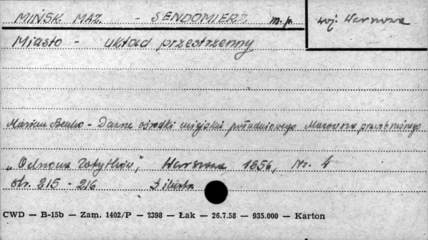 MIŃSK. MAZ. - SENDOMIERZ m.p. woj. Warszawa
Miasto - układ przestrzenny
Marian Benko - Dawne ośrodki miejskie południowego Mazowsza prawobrzeżnego
„Ochrona Zabytków", Warszawa, 1956, Nr. 4
str. 215 - 216 3 ilustr.
CWD — B-15b — Zam. 1402/P — 2398 — Łak — 26.7.58 — 935.000 — Karton